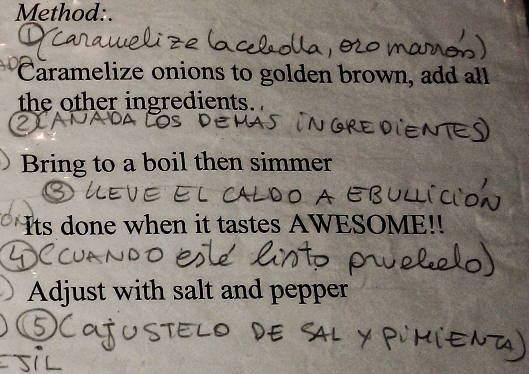 Method:.
① (caramelize la cebolla, oro marrón)
Caramelize onions to golden brown, add all
the other ingredients..
② (AÑADA LOS DEMÁS INGREDIENTES)
Bring to a boil then simmer
③ LLEVE EL CALDO A EBULLICIÓN
Its done when it tastes AWESOME!!
④ (CUANDO esté listo pruebelo)
Adjust with salt and pepper
⑤ (AJUSTELO DE SAL Y PIMIENTA)
EJIL